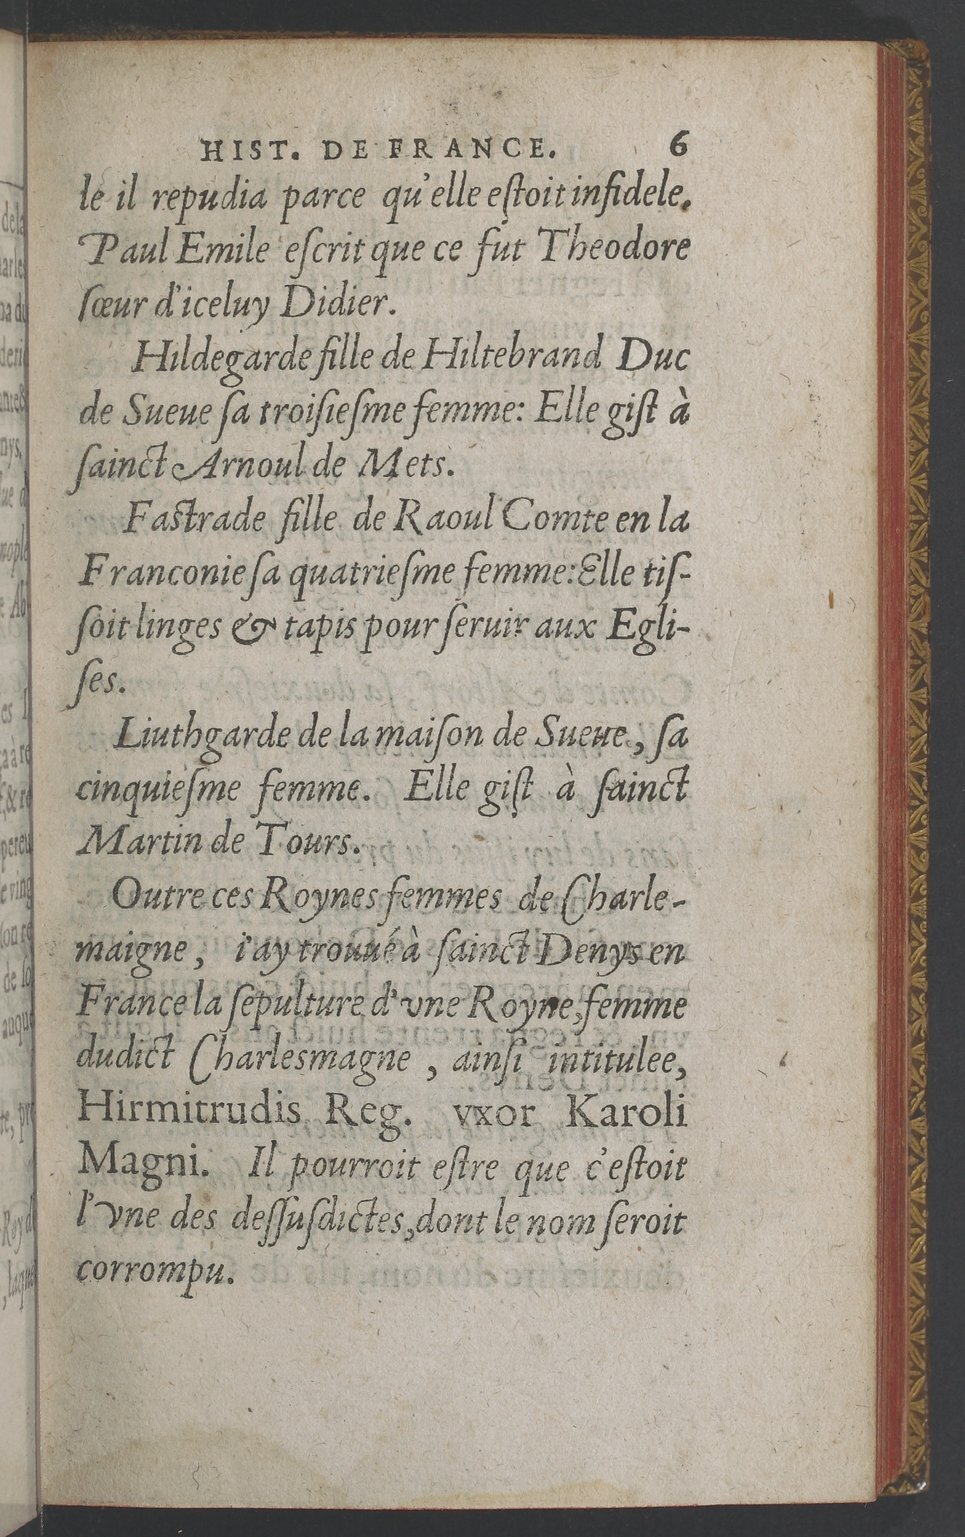 HIST. DE FRANCE. 6
le il repudia parce qu'elle eſtoit infidele.
Paul Emile eſcrit que ce fut Theodore
ſœur d'iceluy Didier.
Hildegarde fille de Hiltebrand Duc
de Sueue ſa troiſieſme femme: Elle giſt à
ſainct Arnoul de Mets.
Faſtrade fille de Raoul Comte en la
Franconie ſa quatrieſme femme: Elle tiſ-
ſoit linges & tapis pour ſeruir aux Egli-
ſes.
Liuthgarde de la maiſon de Sueue, ſa
cinquieſme femme. Elle giſt à ſainct
Martin de Tours.
Outre ces Roynes femmes de Charle-
maigne, i'ay trouué à ſainct Denys en
France la ſepulture d'vne Royne, femme
dudict Charlesmagne, ainſi intitulee,
Hirmitrudis Reg. vxor Karoli
Magni. Il pourroit eſtre que c'eſtoit
l'vne des deſſuſdictes, dont le nom ſeroit
corrompu.